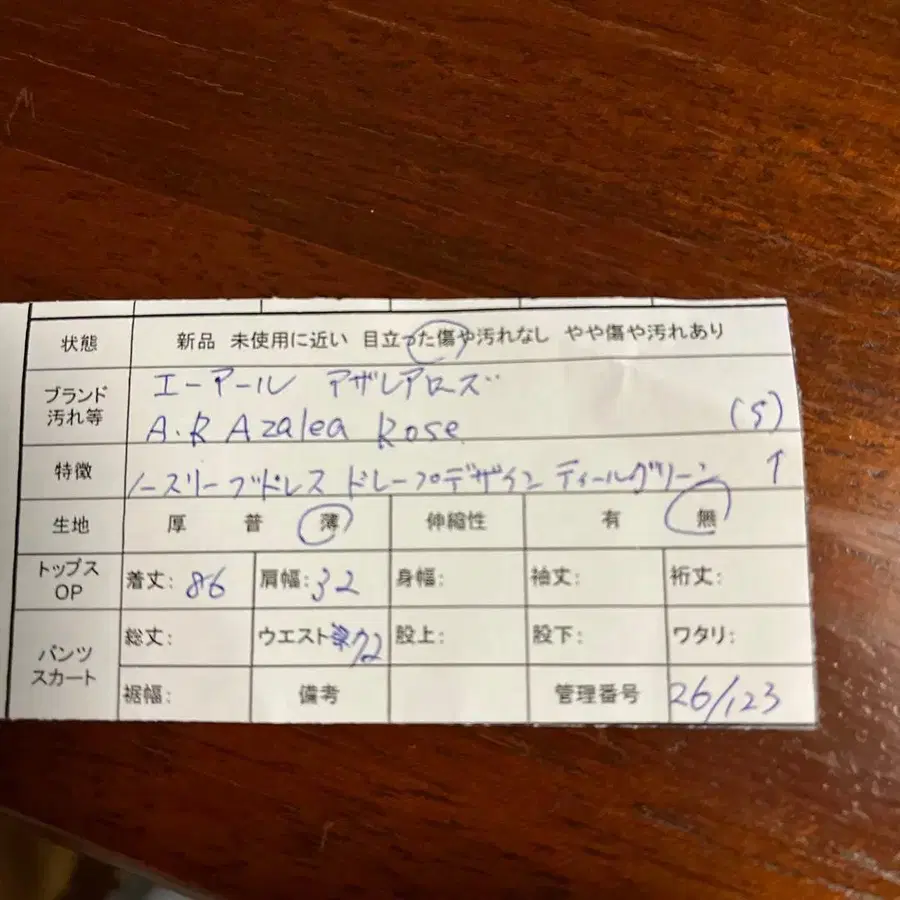 状態 新品 未使用に近い 目立った傷や汚れなし やや傷や汚れあり
ブランド 汚れ等 エーアール アザレアローズ
A.R Azalea Rose (S)
特徴 ノースリーブドレス ドレープデザイン ティールグリーン ↑
生地 厚 普 薄 伸縮性 有 無
トップス OP 着丈: 86 肩幅: 32 身幅: 袖丈: 裄丈:
パンツ スカート 総丈: ウエスト 72 股上: 股下: ワタリ:
裾幅: 備考 管理番号 26/123